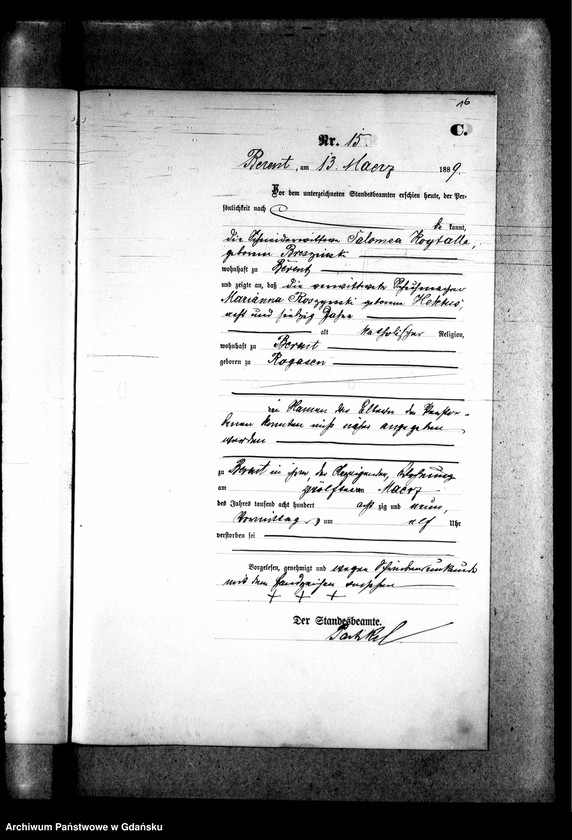 16
C.
Nr. 15.
Berent, am 13. Maerz 1889.
Vor dem unterzeichneten Standesbeamten erschien heute, der Per-
sönlichkeit nach
be kannt,
die Schneiderwittwe Salomea Koytalla,
geborene
wohnhaft zu Berent
und zeigte an, daß die verwittwete Schuhmacher
Marianna geborene
acht und siebzig Jahre
alt katholischer Religion,
wohnhaft zu Berent
geboren zu Rogasen
die Namen der Eltern der Verstor-
benen konnten nicht näher angegeben
werden
zu Berent in ihrer, der Anzeigenden, Wohnung
am zwölften Maerz
des Jahres tausend acht hundert acht zig und neun,
Vormittag s um elf Uhr
verstorben sei
Vorgelesen, genehmigt und wegen Schreibensunkunde
mit dem Handzeichen versehen
+ + +
Der Standesbeamte.
Archiwum Państwowe w Gdańsku